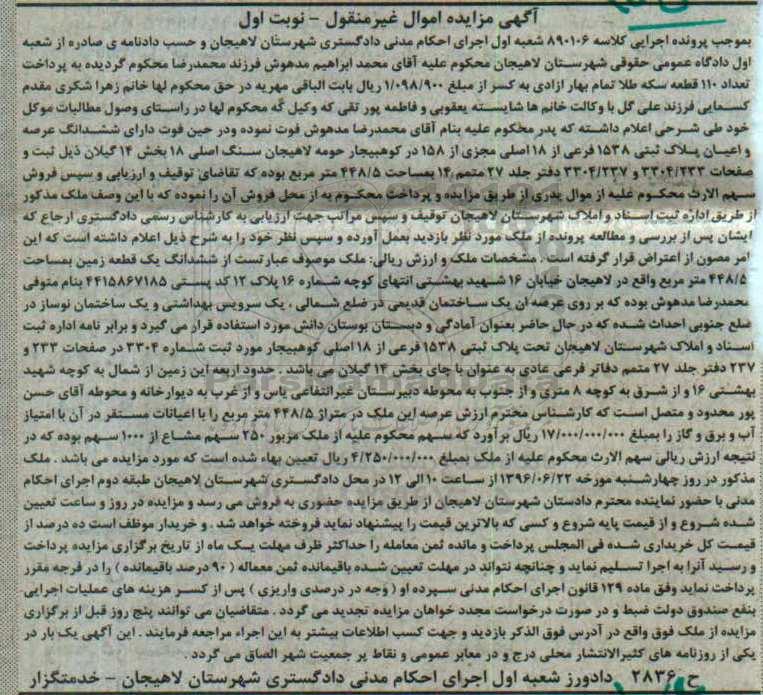 آگهی مزایده اموال غیرمنقول - نوبت اول
بموجب پرونده اجرایی کلاسه ۸۹۰۱۰۶ شعبه اول اجرای احکام مدنی دادگستری شهرستان لاهیجان و حسب دادنامه ی صادره از شعبه
اول دادگاه عمومی حقوقی شهرستان لاهیجان محکوم علیه آقای محمد ابراهیم مدهوش فرزند محمدرضا محکوم گردیده به پرداخت
تعداد ۱۱۰ قطعه سکه طلا تمام بهار ازادی به کسر از مبلغ ۱/۰۹۸/۹۰۰ ریال بابت الباقی مهریه در حق محکوم لها خانم زهرا شکری مقدم
کسمایی فرزند علی گل با وکالت خانم ها شایسته یعقوبی و فاطمه پور تقی که وکیل که محکوم لها در راستای وصول مطالبات موکل
خود طی شرحی اعلام داشته که پدر محکوم علیه بنام آقای محمدرضا مدهوش فوت نموده ودر حین فوت دارای ششدانگ عرصه
و اعیان پلاک ثبتی ۱۵۳۸ فرعی از ۱۸ اصلی مجزی از ۱۵۸ در کوهبیجار حومه لاهیجان سنگ اصلی ۱۸ بخش ۱۴ گیلان ذیل ثبت و
صفحات ۳۳۰۴/۲۳۳ و ۳۳۰۴/۲۳۷ دفتر جلد ۲۷ متمم ۱۴ بمساحت ۴۴۸/۵ متر مربع بوده که تقاضای توقیف و ارزیابی و سپس فروش
سهم الارث محکوم علیه از موال پدری از طریق مزایده و پرداخت محکوم به از محل فروش آن را نموده که با این وصف ملک مذکور
از طریق اداره ثبت اسناد و املاک شهرستان لاهیجان توقیف و سپس مراتب جهت ارزیابی به کارشناس رسمی دادگستری ارجاع که
ایشان پس از بررسی و مطالعه پرونده از ملک مورد نظر بازدید بعمل آورده و سپس نظر خود را به شرح ذیل اعلام داشته است که این
امر مصون از اعتراض قرار گرفته است . مشخصات ملک و ارزش ریالی: ملک موصوف عبارتست از ششدانگ یک قطعه زمین بمساحت
۴۴۸/۵ متر مربع واقع در لاهیجان خیابان ۱۶ شهید بهشتی انتهای کوچه شماره ۱۶ پلاک ۱۲ کد پستی ۴۴۱۵۸۶۷۱۸۵ بنام متوفی
محمدرضا مدهوش بوده که بر روی عرصه ان یک ساختمان قدیمی در ضلع شمالی ، یک سرویس بهداشتی و یک ساختمان نوساز در
ضلع جنوبی احداث شده که در حال حاضر بعنوان آمادگی و دبستان بوستان دانش مورد استفاده قرار می گیرد و برابر نامه اداره ثبت
اسناد و املاک شهرستان لاهیجان تحت پلاک ثبتی ۱۵۳۸ فرعی از ۱۸ اصلی کوهبیجار مورد ثبت شماره ۳۳۰۴ در صفحات ۲۳۳ و
۲۳۷ دفتر جلد ۲۷ متمم دفاتر فرعی عادی به عنوان با چای بخش ۱۴ گیلان می باشد . حدود اربعه این زمین از شمال به کوچه شهید
بهشتی ۱۶ و از شرق به کوچه ۸ متری و از جنوب به محوطه دبیرستان غیرانتفاعی یاس و از غرب به دیوارخانه و محوطه آقای حسن
پور محدود و متصل است که کارشناس محترم ارزش عرصه این ملک در متراژ ۴۴۸/۵ متر مربع را با اعیانات مستقر در آن با امتیاز
آب و برق و گاز را بمبلغ ۱۷/۰۰۰/۰۰۰/۰۰۰ ریال برآورد که سهم محکوم علیه از ملک مزبور ۲۵۰ سهم مشاع از ۱۰۰۰ سهم بوده که در
نتیجه ارزش ریالی سهم الارث محکوم علیه از ملک بمبلغ ۴/۲۵۰/۰۰۰/۰۰۰ ریال تعیین بهاء شده است که مورد مزایده می باشد . ملک
مذکور در روز چهارشنبه مورخه ۱۳۹۶/۰۶/۲۲ از ساعت ۱۰ الی ۱۲ در محل دادگستری شهرستان لاهیجان طبقه دوم اجرای احکام
مدنی با حضور نماینده محترم دادستان شهرستان لاهیجان از طریق مزایده حضوری به فروش می رسد و مزایده در روز و ساعت تعیین
شده شروع و از قیمت پایه شروع و کسی که بالاترین قیمت را پیشنهاد نماید فروخته خواهد شد . و خریدار موظف است ده درصد از
قیمت کل خریداری شده فی المجلس پرداخت و مانده ثمن معامله را حداکثر ظرف مهلت یک ماه از تاریخ برگزاری مزایده پرداخت
و رسید آنرا به اجرا تسلیم نماید و چنانچه نتواند در مهلت تعیین شده باقیمانده ثمن معماله ( ۹۰ درصد باقیمانده ) را در فرجه مقرر
پرداخت نماید وفق ماده ۱۲۹ قانون اجرای احکام مدنی سپرده او ( وجه در درصدی واریزی ) پس از کسر هزینه های عملیات اجرایی
بنفع صندوق دولت ضبط و در صورت درخواست مجدد خواهان مزایده تجدید می گردد . متقاضیان می توانند پنج روز قبل از برگزاری
مزایده از ملک فوق واقع در آدرس فوق الذکر بازدید و جهت کسب اطلاعات بیشتر به این اجراء مراجعه فرمایند . این آگهی یک بار در
یکی از روزنامه های کثیرالانتشار محلی درج و در معابر عمومی و نقاط پر جمعیت شهر الصاق می گردد .
ح ۲۸۳۶ دادورز شعبه اول اجرای احکام مدنی دادگستری شهرستان لاهیجان - خدمتگزار